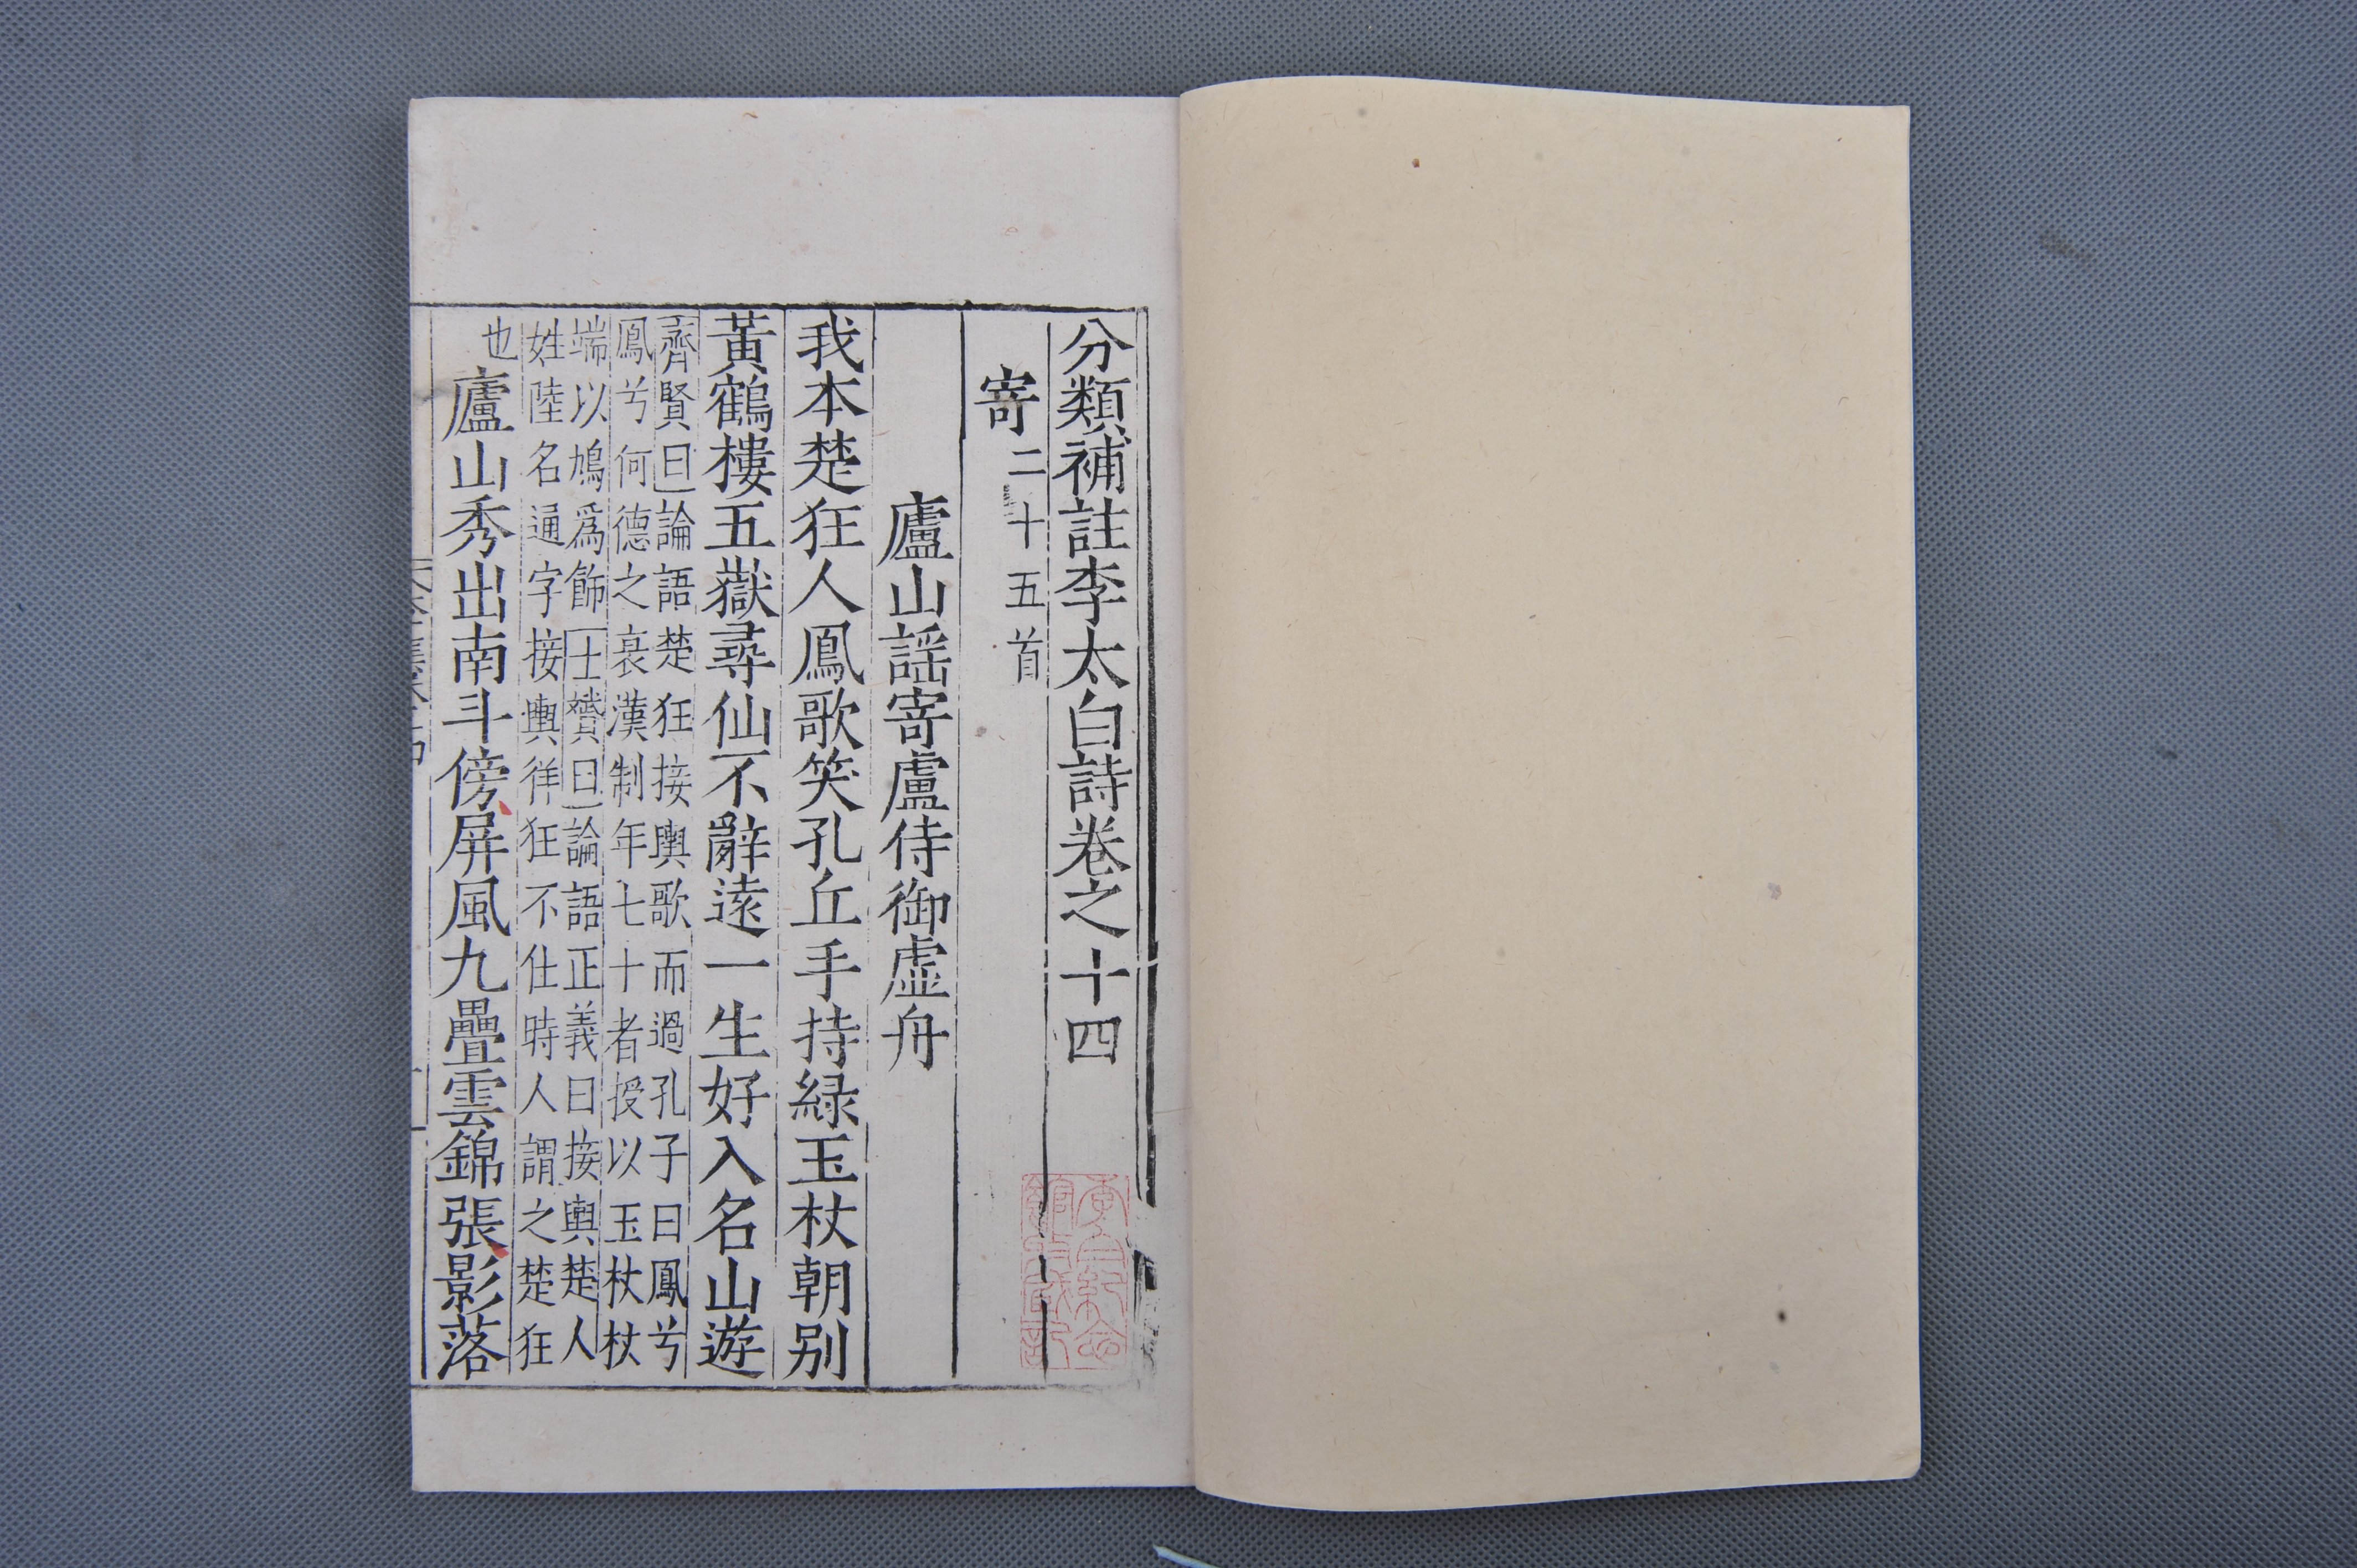 分類補註李太白詩卷之十四
寄二十五首
廬山謡寄盧侍御虛舟
我本楚狂人鳳歌笑孔丘手持緑玉杖朝别
黃鶴樓五嶽尋仙不辭逺一生好入名山遊
齊賢曰論語楚狂接輿歌而過孔子曰鳳兮
鳳兮何德之衰漢制年七十者授以玉杖杖
端以鳩爲飾士贇曰論語正義曰接輿楚人
姓陸名通字接輿徉狂不仕時人謂之楚狂
也
廬山秀出南斗傍屏風九疊雲錦張影落
李白紀念
館收藏記